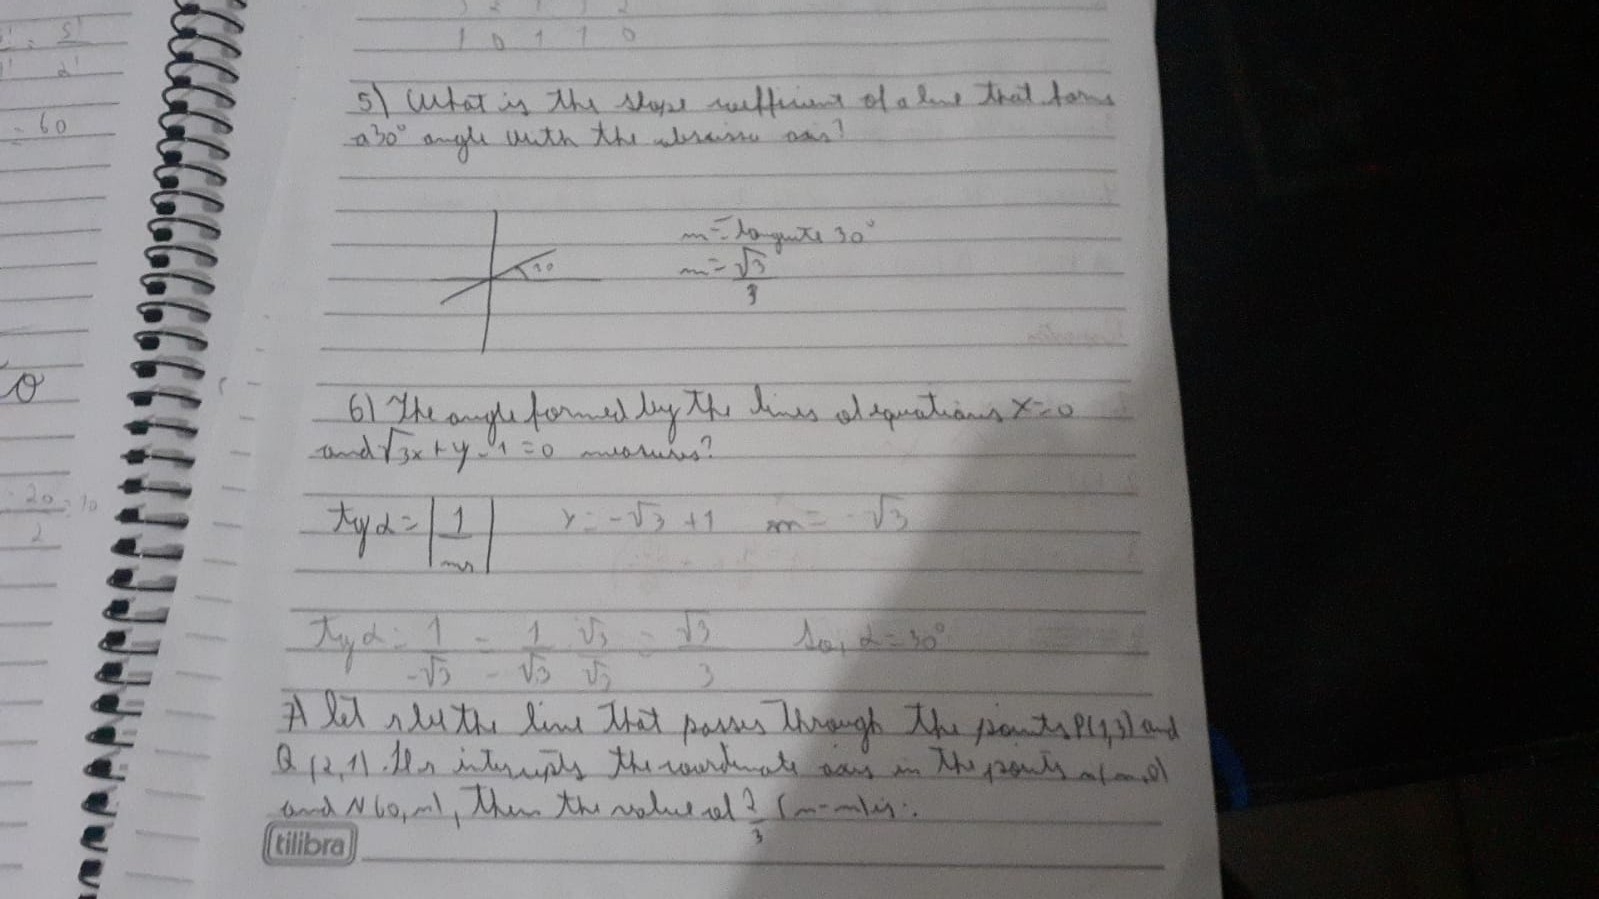 5! = 5!
2!
= 60
20 = 10
2
1 0 1 1 0
5) What is the slope coefficient of a line that forms
a 30° angle with the abscissa axis?
30
m = tangente 30°
m = √3
3
6) The angle formed by the lines of equations x=0
and √3x + y - 1 = 0 measures?
tg α = |1/mr| Y = -√3 + 1 m = -√3
tg α = 1/-√3 = 1/√3 √3/√3 = √3/3 So, α = 30°
7) let r let the line that passes through the points P(1,3) and
Q (2,1). If r intercepts the coordinate axis in the points m(m,0)
and N(0,n), then the value of 2/3 (n-m) is:
tilibra